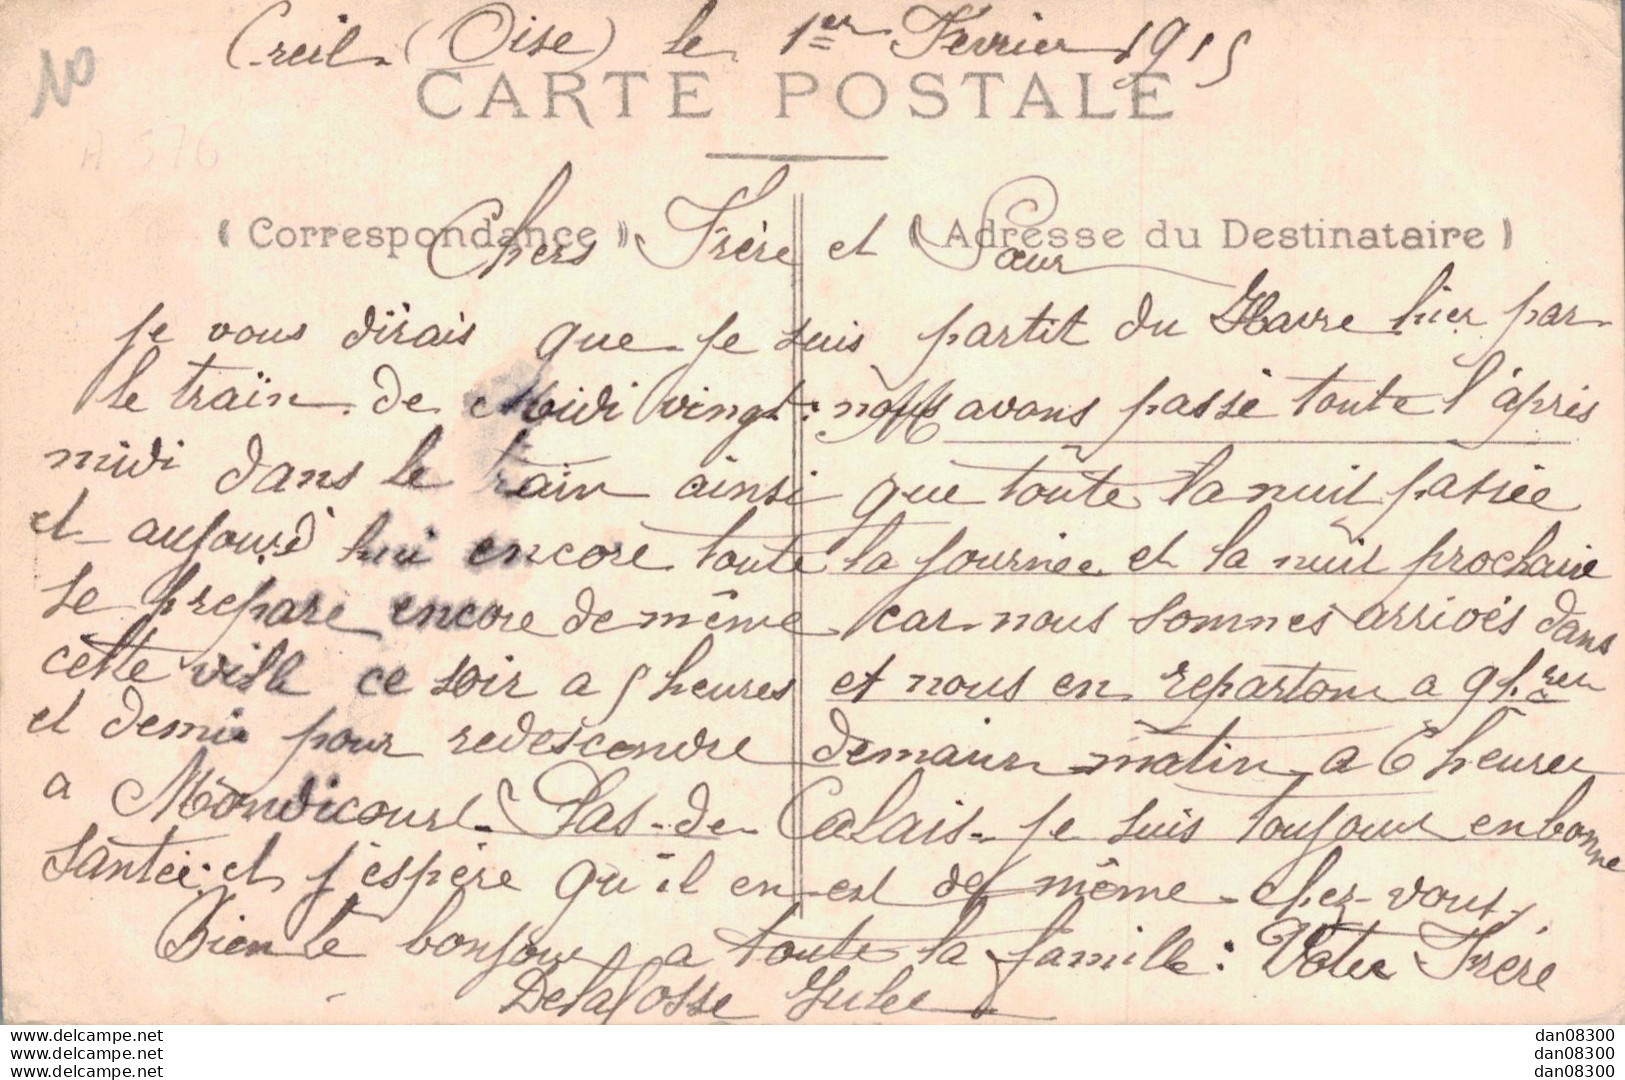 Creil (Oise) le 1er Fevrier 1915
10
CARTE POSTALE
A 576
( Correspondance )
( Adresse du Destinataire )
Chers Frère et Sœur
je vous dirais que je suis partit du Havre hier par
le train de Midi vingt: nous avons passè toute l'àpris
midi dans le train ainsi que toute la nuit passée
et aujourd hui encore toute la journée et la nuit prochaine
se prepare encore de même car nous sommes arrivés dans
cette ville ce soir a 5 heures et nous en repartons a 9 h.
et demie pour redescendre demain matin a 6 heures
a Mondicourt Pas-de-Calais. je suis toujours en bonne
santée et j'espère qu'il en est de même chez vous
Bien le bonjour a toute la famille: Votre Frère
Delafosse Jules
www.delcampe.net dan08300
www.delcampe.net dan08300
www.delcampe.net dan08300